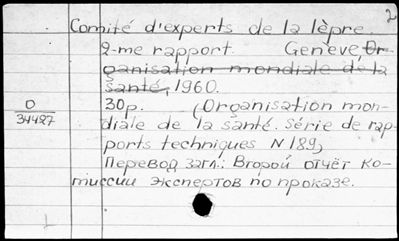 2
Comité d'experts de la lèpre.
2-me rapport. Genève, Or-
ganisation mondiale de la
santé, 1960.
O
34487
30p. (Organisation mon-
diale de la santé. Série de rap-
ports techniques N 189)
Перевод загл.: Второй отчёт ко-
миссии экспертов по проказе.